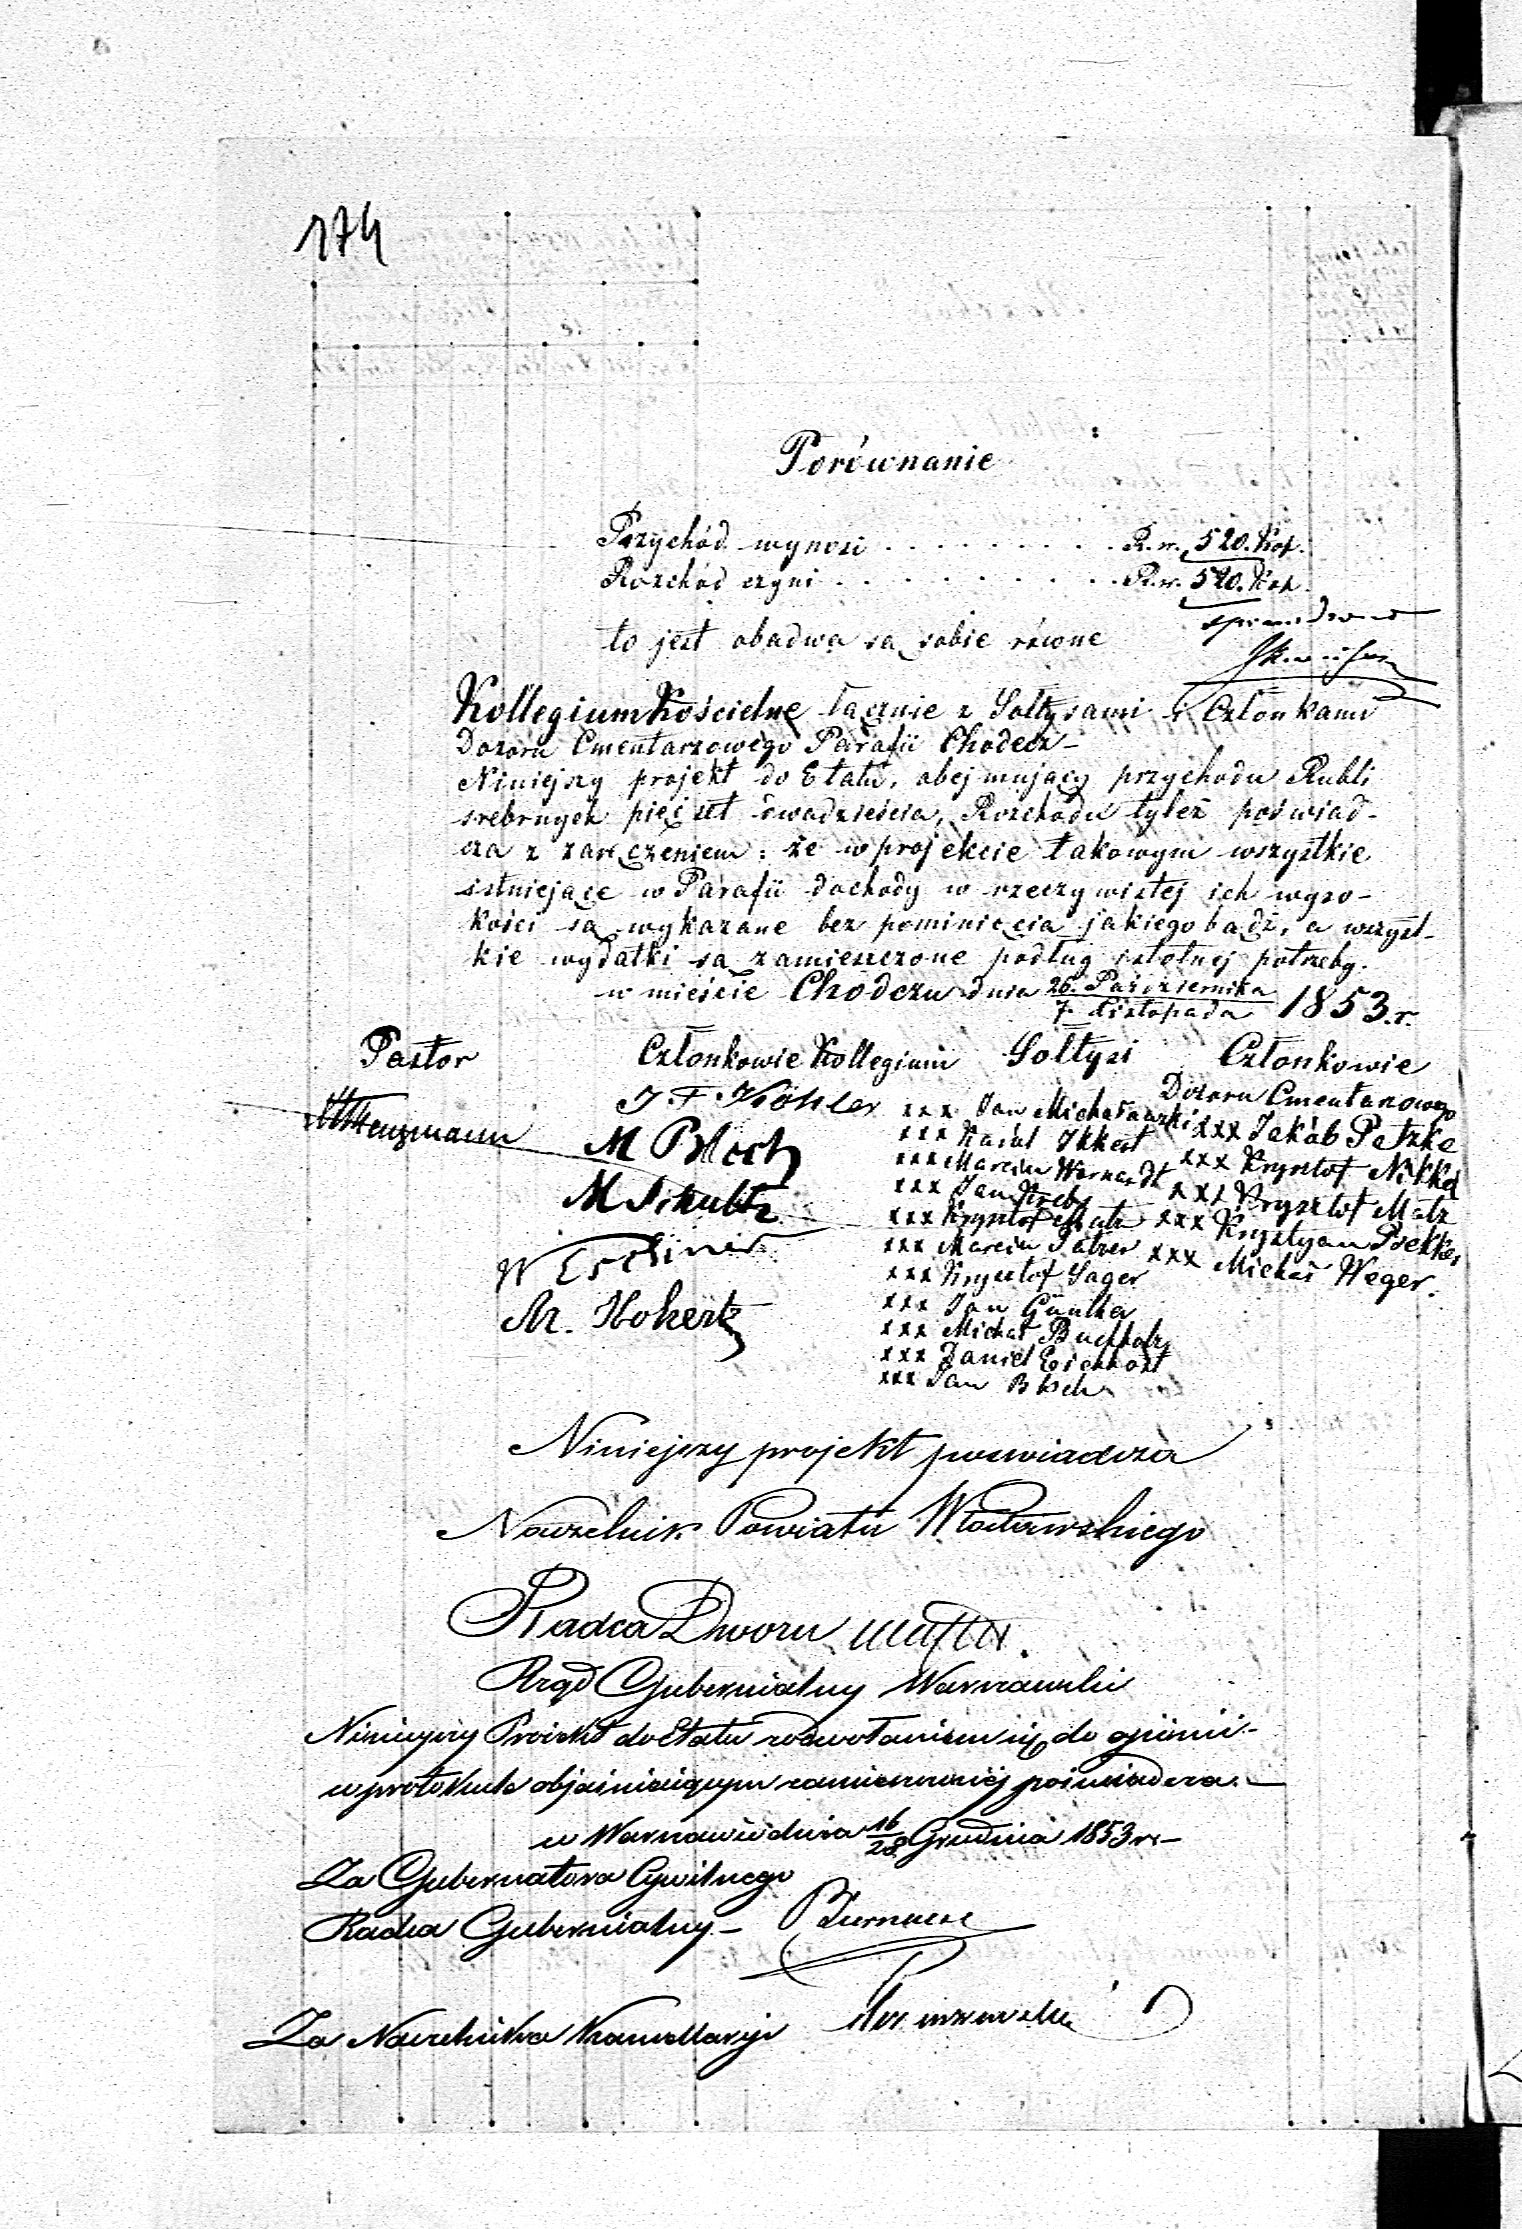 174
Porównanie
Przychód wynosi . . . . . . . . R. sr. 520. Kop.
Rozchód czyni . . . . . . . . . . R. sr. 520. Kop.
sprawdzono
to jest obadwa są sobie równe
Kollegium Kościelne łącznie z Sołtysami i Członkami
Dozoru Cmentarzowego Parafii Chodecz-
Niniejszy projekt do Etatu, obejmujący przychodu Rubli
srebrnych pięćset dwadzieścia, Rozchodu tyleż poświad-
cza z zaręczeniem: że w projekcie takowym wszystkie
istniejące w Parafii dochody w rzeczywistej ich wyso-
kości są wykazane bez pominięcia jakiegobądź, a wszyst-
kie wydatki są zamieszczone podług istotnej potrzeby.
w mieście Chodczu dnia 26. Października / 7. Listopada 1853. r.
Pastor
Członkowie Kollegium
J. F. Köhler
M Bloch
M Schultz
M. Hokertz
Sołtysi
xxx Jan Michałowski
xxx Karol Ikkert
xxx Marcin Wernardt
xxx Jan
xxx Krysztof Matz
xxx Marcin Patzer
xxx Krysztof Sager
xxx Jan Günther
xxx Michał Buchholz
xxx Daniel Eichhorst
xxx Jan Bloch
Członkowie
Dozoru Cmentarzowego
xxx Jakób Patzke
xxx Krysztof Nikkel
xxx Krysztof Matz
xxx Krystyan Bekker
xxx Michał Weger.
Niniejszy projekt poświadcza
Naczelnik Powiatu Włocławskiego
Radca Dworu
Rząd Gubernialny Warszawski
Niniejszy Projekt do Etatu z odwołaniem się do opinii-
w protokule objaśniającym zamieszczonej poświadcza.-
w Warszawie dnia 16/28 Grudnia 1853 r.-
Za Gubernatora Cywilnego
Radca Gubernialny- Biernacki
Za Naczelnika Kancellaryi